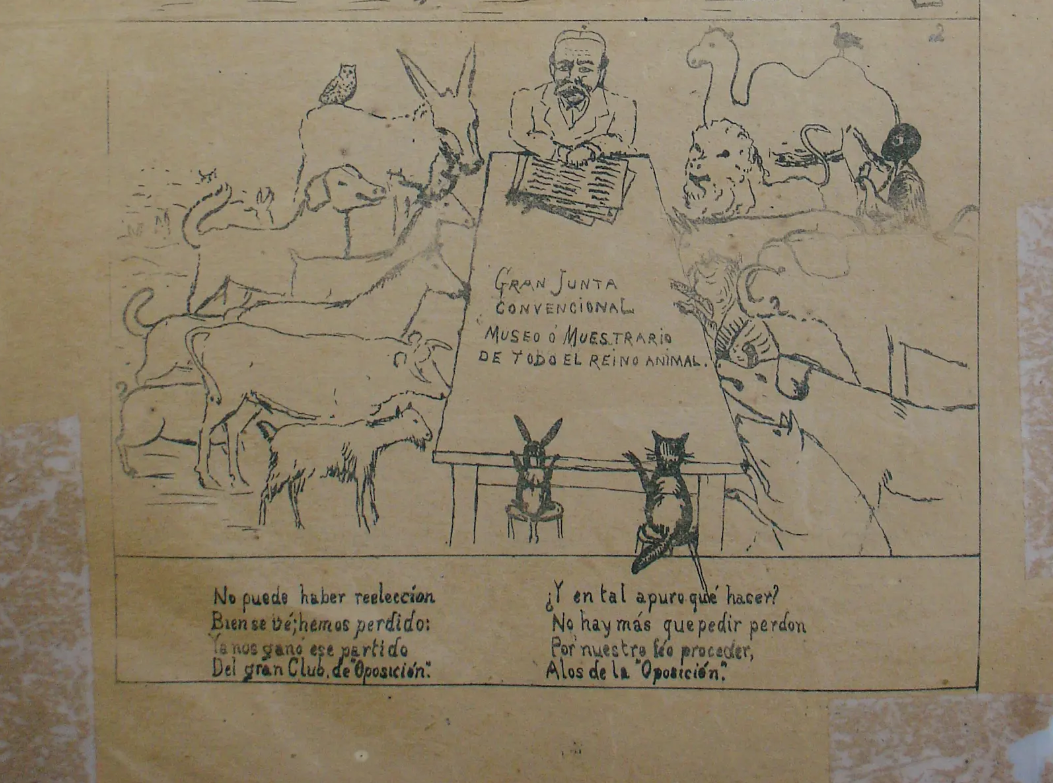 GRAN JUNTA
CONVENCIONAL
MUSEO Ó MUESTRARIO
DE TODO EL REINO ANIMAL.
No puede haber reelección
Bien se vé; hemos perdido:
Ya nos ganó ese partido
Del gran Club, de "Oposición".
¿Y en tal apuro qué hacer?
No hay más que pedir perdon
Por nuestro féo proceder,
A los de la "Oposición".